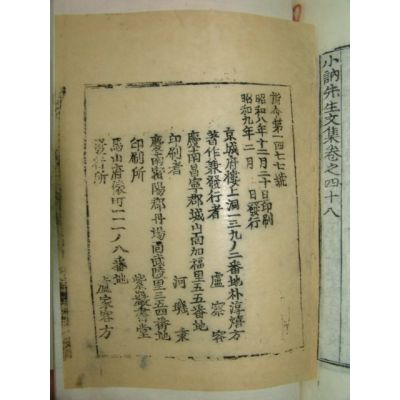 小訥先生文集卷之四十八
指令第一四七七號
昭和八年十二月二十日印刷
昭和九年二月 日發行
京城府樓上洞一三九ノ二番地朴淳熺方
著作兼發行者 盧家容
慶南昌寧郡城山面加福里五五番地
印刷者 河璣秉
慶南密陽郡丹場面武陵里三五四番地
印刷所 紫巖書堂
馬山府俵町一一一ノ八番地
發行所 盧家容方